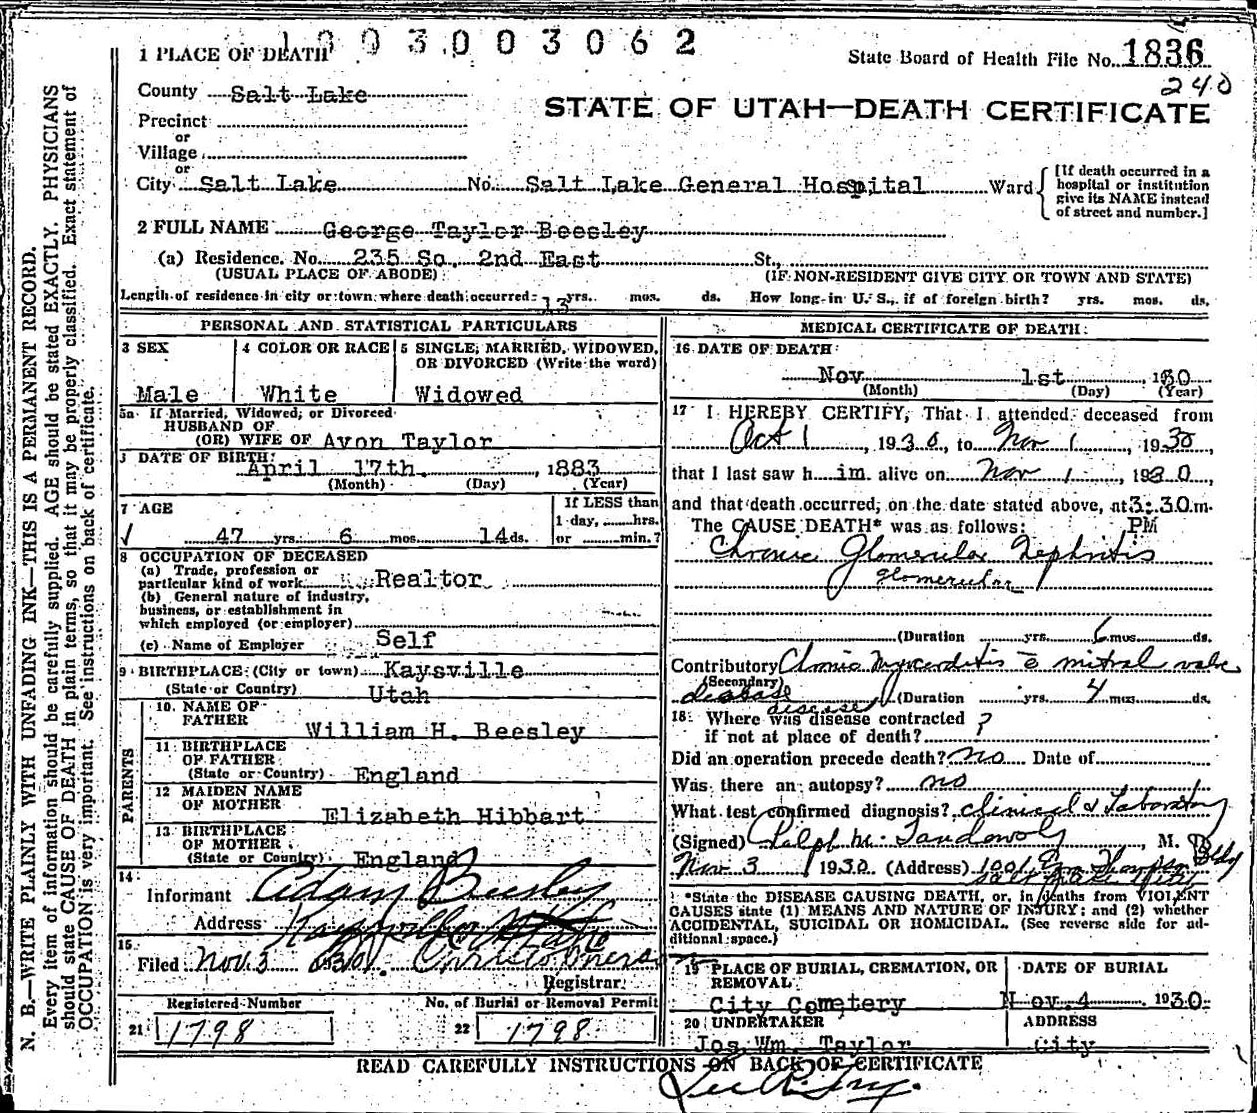 1003003062
1 PLACE OF DEATH
State Board of Health File No. 1836
240
County Salt Lake
STATE OF UTAH—DEATH CERTIFICATE
Precinct
or
Village
or
City Salt Lake No. Salt Lake General Hospital Ward
[If death occurred in a hospital or institution give its NAME instead of street and number.]
2 FULL NAME George Taylor Beesley
(a) Residence. No. 235 So. 2nd East St.,
(USUAL PLACE OF ABODE) (IF NON-RESIDENT GIVE CITY OR TOWN AND STATE)
Length of residence in city or town where death occurred 13 yrs. mos. ds. How long in U. S., if of foreign birth? yrs. mos. ds.
PERSONAL AND STATISTICAL PARTICULARS
3 SEX
Male
4 COLOR OR RACE
White
5 SINGLE, MARRIED, WIDOWED,
OR DIVORCED (Write the word)
Widowed
5a If Married, Widowed, or Divorced
HUSBAND OF
(OR) WIFE OF Avon Taylor
DATE OF BIRTH
April 17th, 1883
(Month) (Day) (Year)
7 AGE
47 yrs. 6 mos. 14 ds.
If LESS than
1 day, hrs.
or min.?
8 OCCUPATION OF DECEASED
(a) Trade, profession or
particular kind of work Realtor
(b) General nature of industry,
business, or establishment in
which employed (or employer)
(c) Name of Employer Self
9 BIRTHPLACE (City or town) Kaysville
(State or Country) Utah
PARENTS
10 NAME OF
FATHER William H. Beesley
11 BIRTHPLACE
OF FATHER
(State or Country) England
12 MAIDEN NAME
OF MOTHER Elizabeth Hibbart
13 BIRTHPLACE
OF MOTHER
(State or Country) England
14
Informant Adam Beesley
Address Kaysville Utah
15
Filed Nov. 3 1930.
Registrar
Registered Number No. of Burial or Removal Permit
21 1798 22 1798
MEDICAL CERTIFICATE OF DEATH
16 DATE OF DEATH
Nov 1st, 1930
(Month) (Day) (Year)
17 I HEREBY CERTIFY, That I attended deceased from
Oct 1, 1930, to Nov 1, 1930
that I last saw h im alive on Nov 1, 1930,
and that death occurred, on the date stated above, at 3:30 m.
The CAUSE DEATH* was as follows: PM
Chronic Glomerular Nephritis
glomerular
(Duration yrs. 6 mos. ds.
Contributory Chronic Myocarditis c̄ mitral valve
(Secondary)
disease (Duration yrs. 4 mos. ds.
disease
18 Where was disease contracted
if not at place of death? ?
Did an operation precede death? no Date of
Was there an autopsy? no
What test confirmed diagnosis? Clinical & Laboratory
(Signed) M. D.
Nov 3 1930 (Address) 1001 Bldg
*State the DISEASE CAUSING DEATH, or, in deaths from VIOLENT
CAUSES state (1) MEANS AND NATURE OF INJURY; and (2) whether
ACCIDENTAL, SUICIDAL OR HOMICIDAL. (See reverse side for ad-
ditional space.)
19 PLACE OF BURIAL, CREMATION, OR
REMOVAL
City Cemetery
DATE OF BURIAL
Nov. 4 1930
20 UNDERTAKER
Jos. Wm. Taylor
ADDRESS
City
READ CAREFULLY INSTRUCTIONS ON BACK OF CERTIFICATE
N. B.—WRITE PLAINLY WITH UNFADING INK—THIS IS A PERMANENT RECORD.
Every item of information should be carefully supplied. AGE should be stated EXACTLY. PHYSICIANS
should state CAUSE OF DEATH in plain terms, so that it may be properly classified. Exact statement of
OCCUPATION is very important. See instructions on back of certificate.